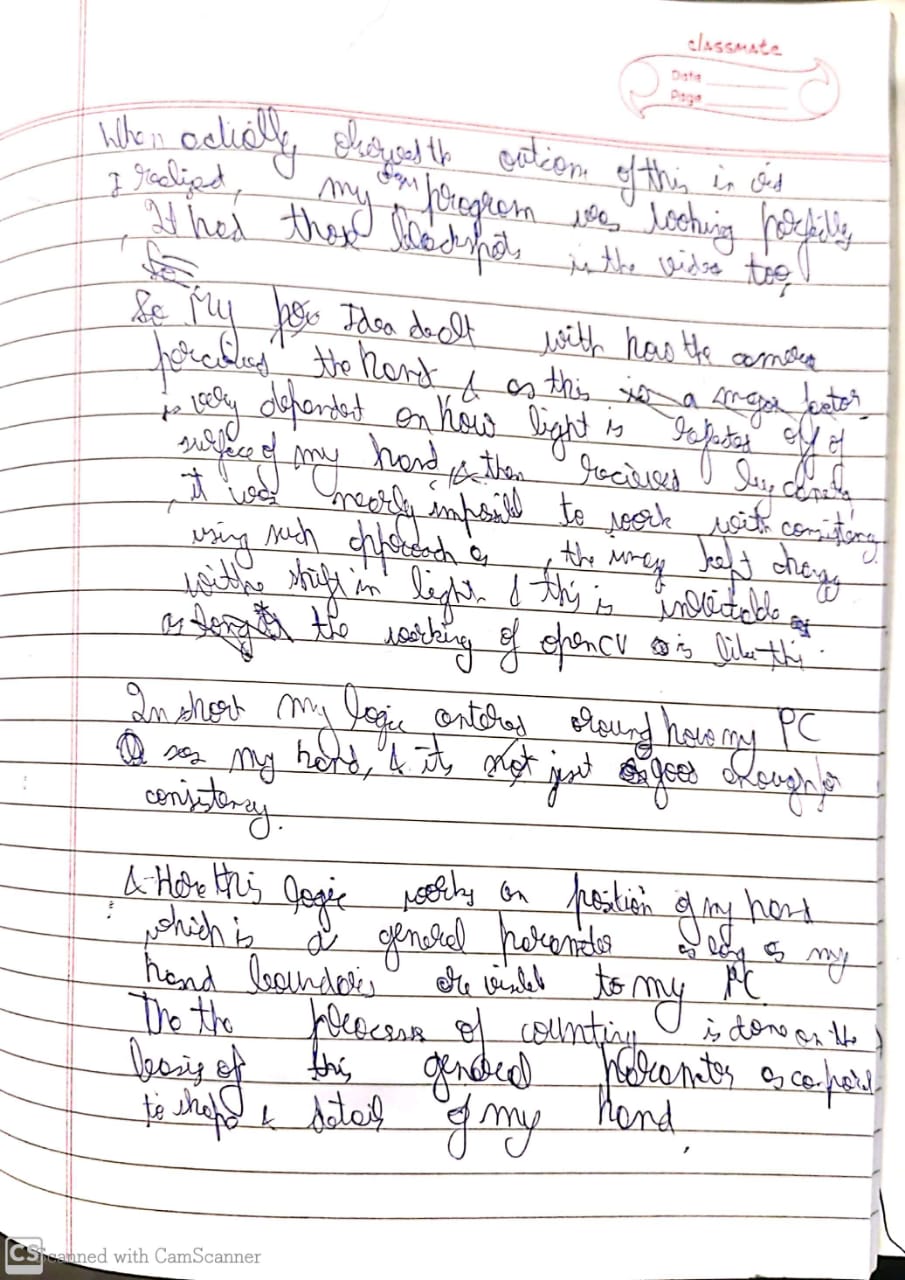 classmate
Date
Page
When actially showed th outcom of this in vid
I realized, my own program was looking perfectly,
It had those blackspots in the video too,
So
So My Idea dealt with how the camera
percieves the hand & as this is a major factor
is very dependet on how light is off of
surface of my hand & then recieves by
it was nearly impossible to work with consistency
using such approach as the image kept
withe shift in light & this is inevitable
as long the working of opencv is like this
In short my logic centeres around how my PC
sees my hand, & its not just good enough for
consistency.
& Here this logic works on position of my hand
which is a general parameter as long as my
hand boundaries are visible to my PC.
The the process of counting is done on the
basis of this general parameter as
to shape & details of my hand
CS Scanned with CamScanner